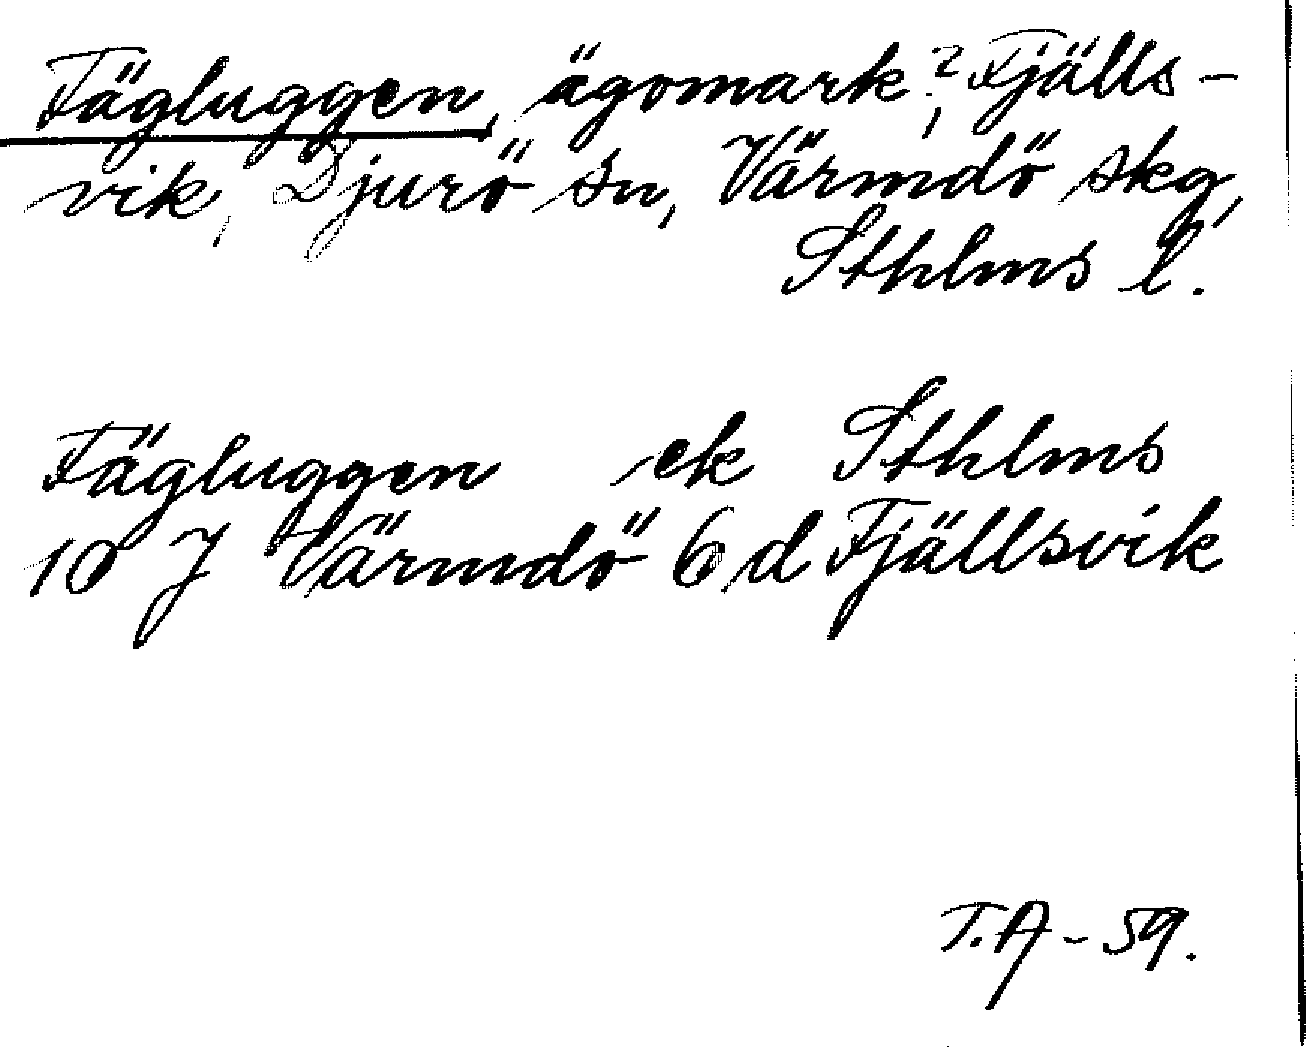 Fägluggen, ägomark?, Fjälls-
vik, Djurö sn, Värmdö skg,
Sthlms l.
Fägluggen ek Sthlms
10 J Värmdö 6 d Fjällsvik
T.A - 59.